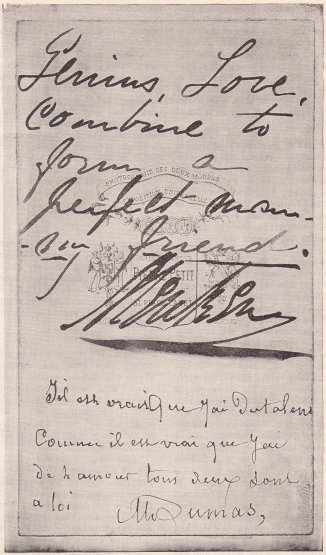 Genius, Love,
Combine to
form a
perfect man-
-my friend.
PHOTOGRAPHIE DES DEUX MONDES
PETIT
S'il est vrai que j'ai Du talent
Comme il est vrai que j'ai
de l'amour tous deux sont
a toi
Al Dumas,